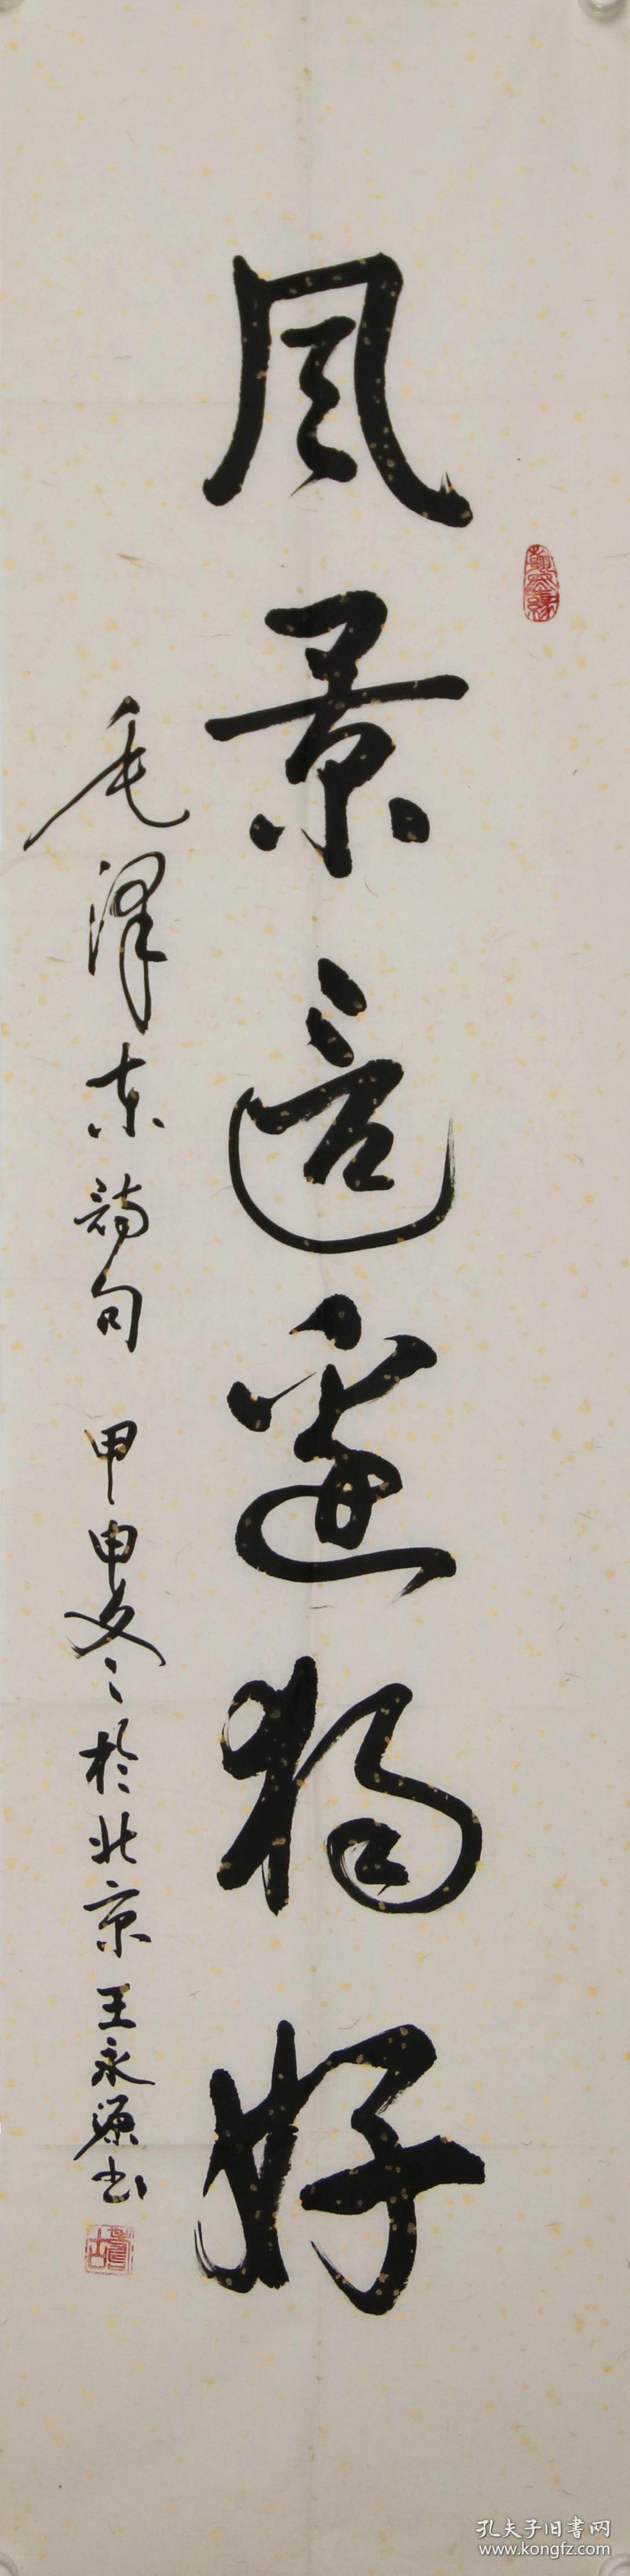 風景這邊獨好
毛澤東詩句 甲申冬之於北京 王永源书
孔夫子旧書网
www.kongfz.com